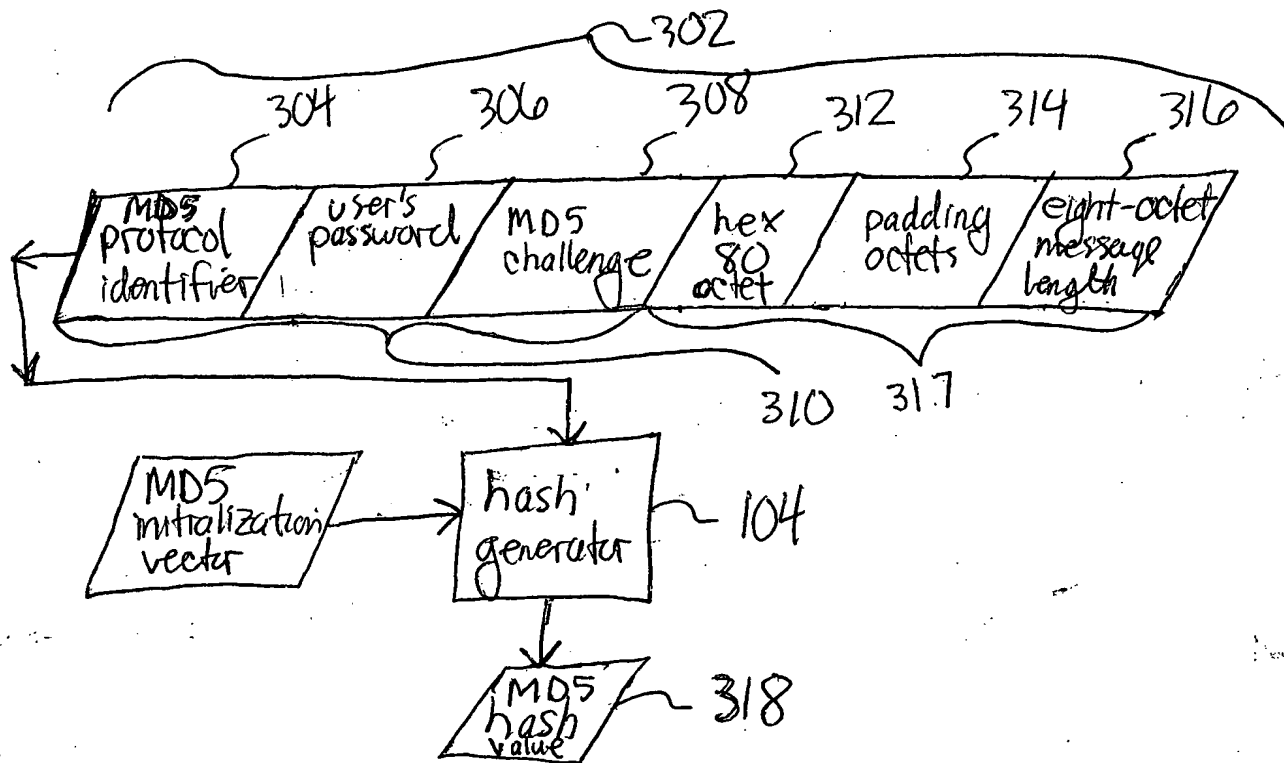 302
304
306
308
312
314
316
MD5
protocol
identifier
user's
password
MD5
challenge
hex
80
octet
padding
octets
eight-octet
message
length
310
317
MD5
initialization
vector
hash
generator
104
MD5
hash
value
318